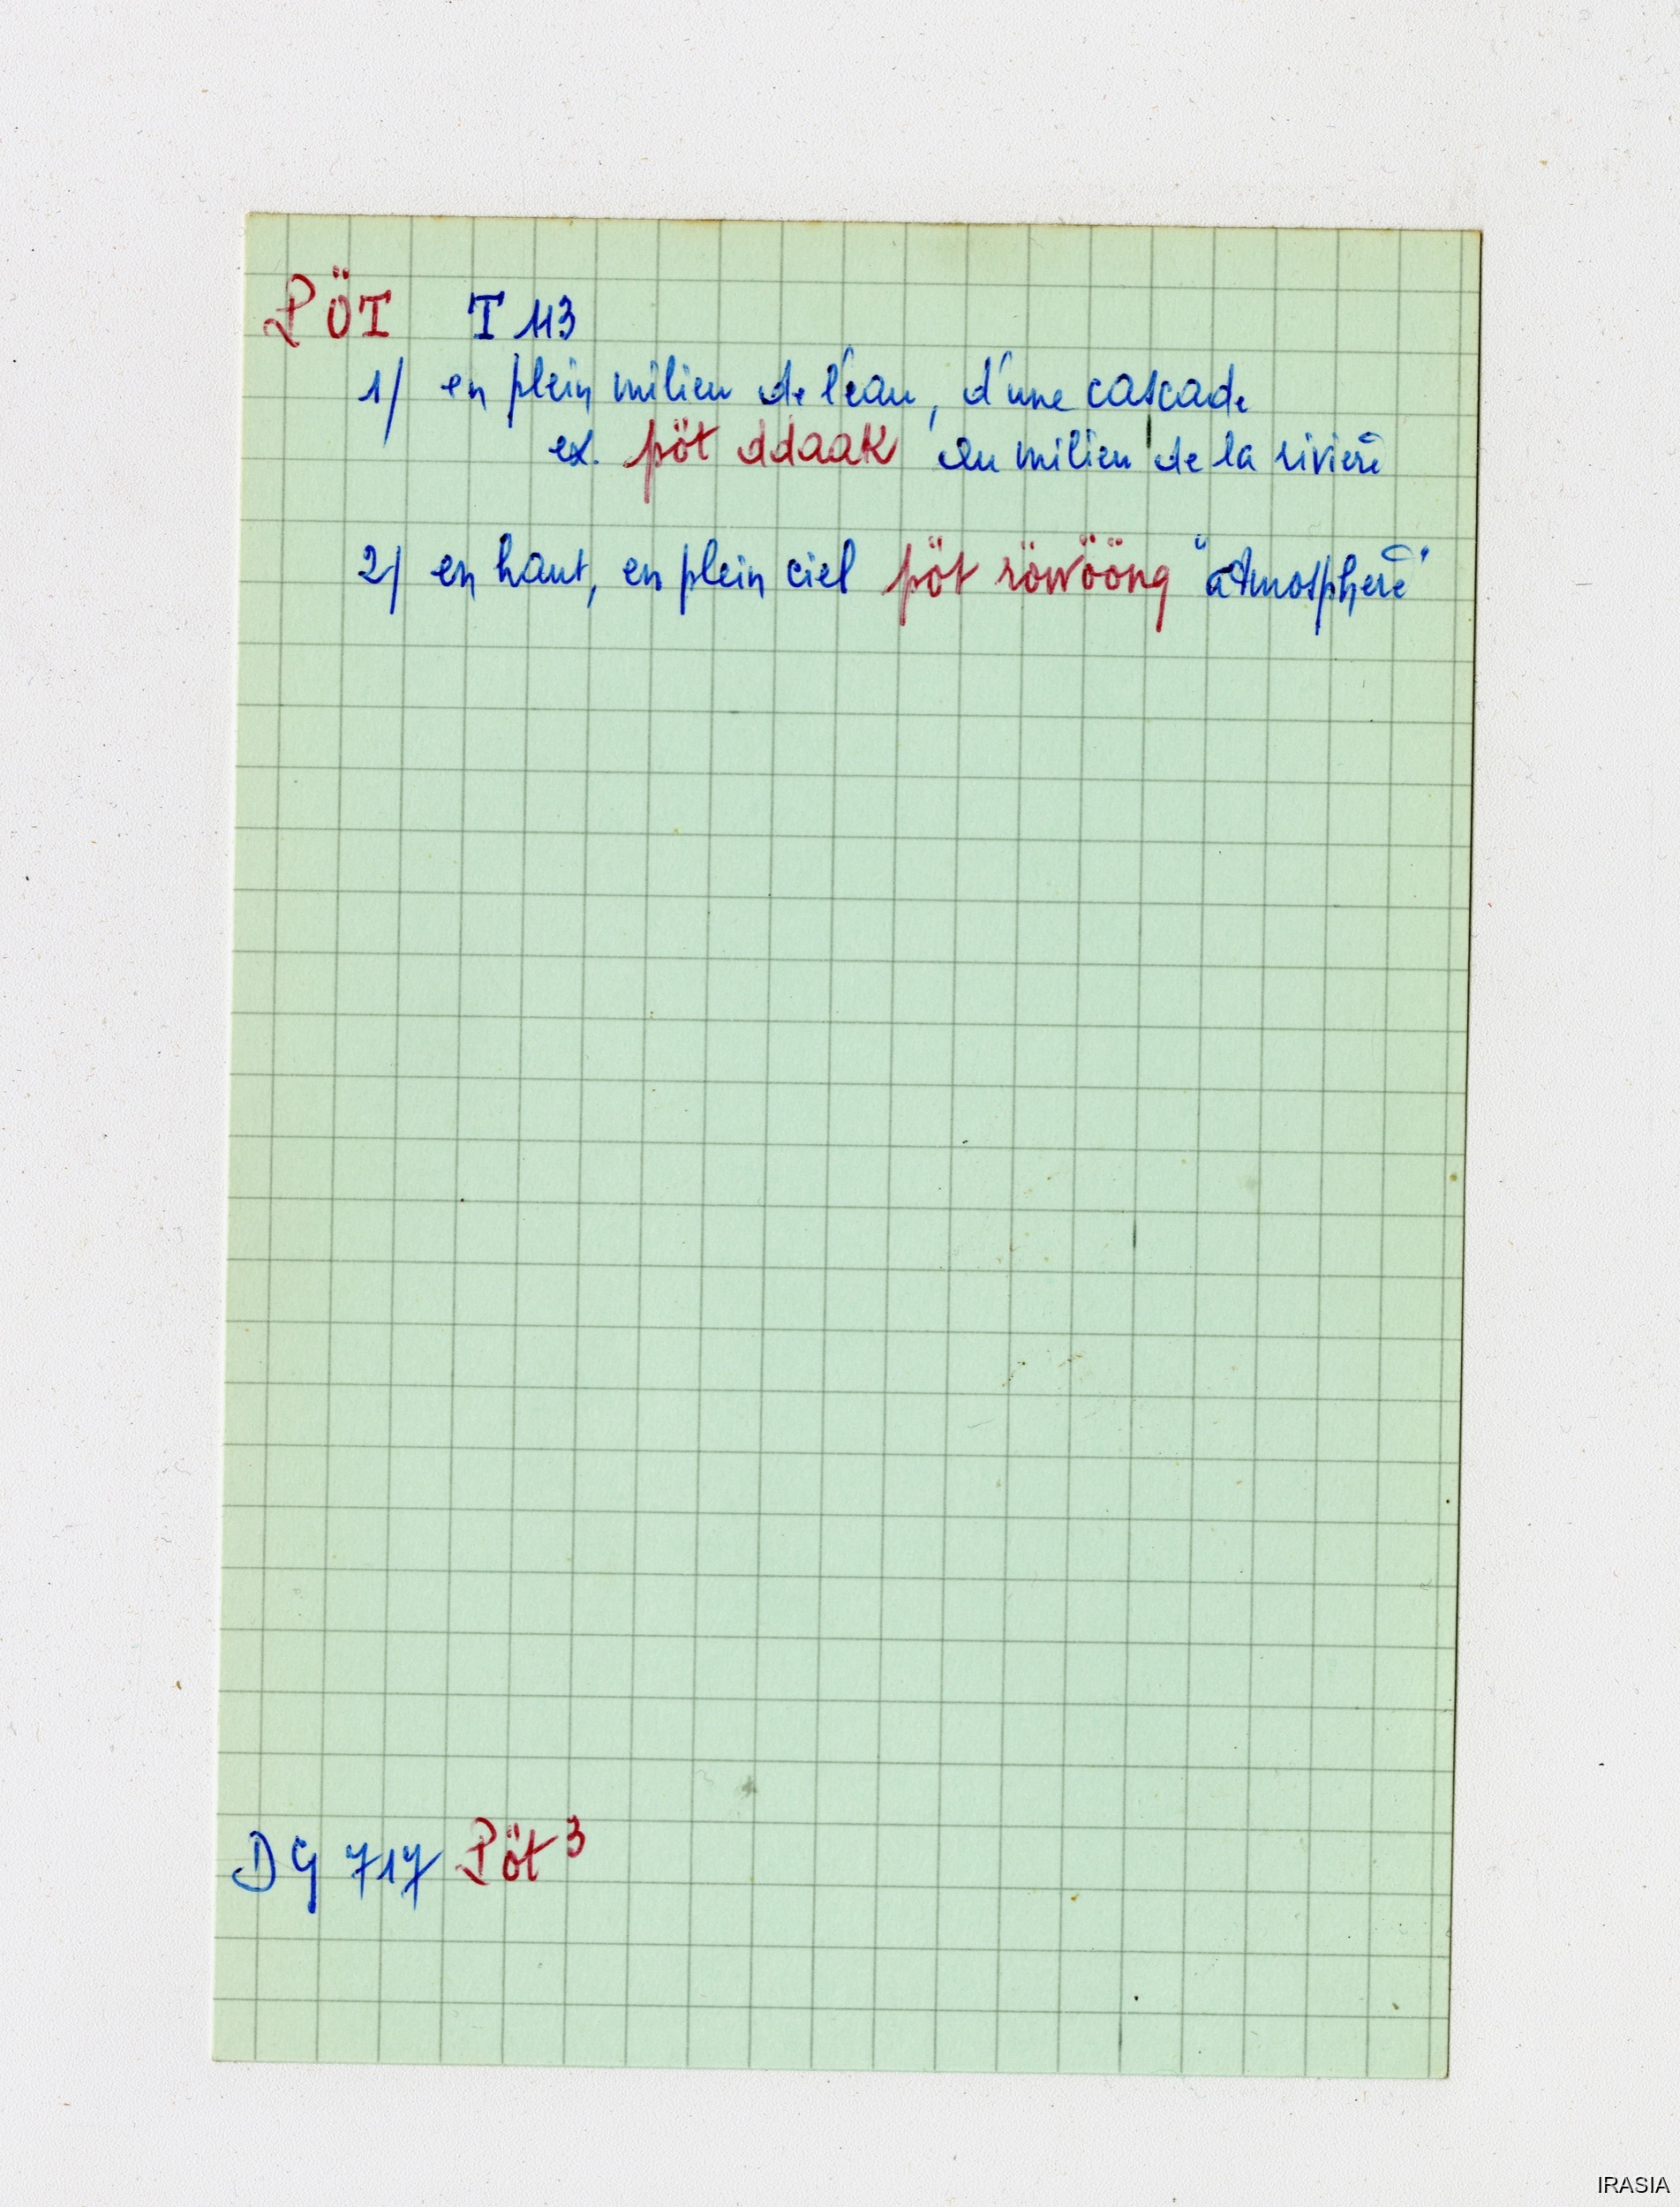 PÖT T 113
1/ en plein milieu de l'eau, d'une cascade
ex. pöt ddaak au milieu de la rivière
2/ en haut, en plein ciel pöt röwööng "atmosphère"
DG 717 Pöt 3
IRASIA